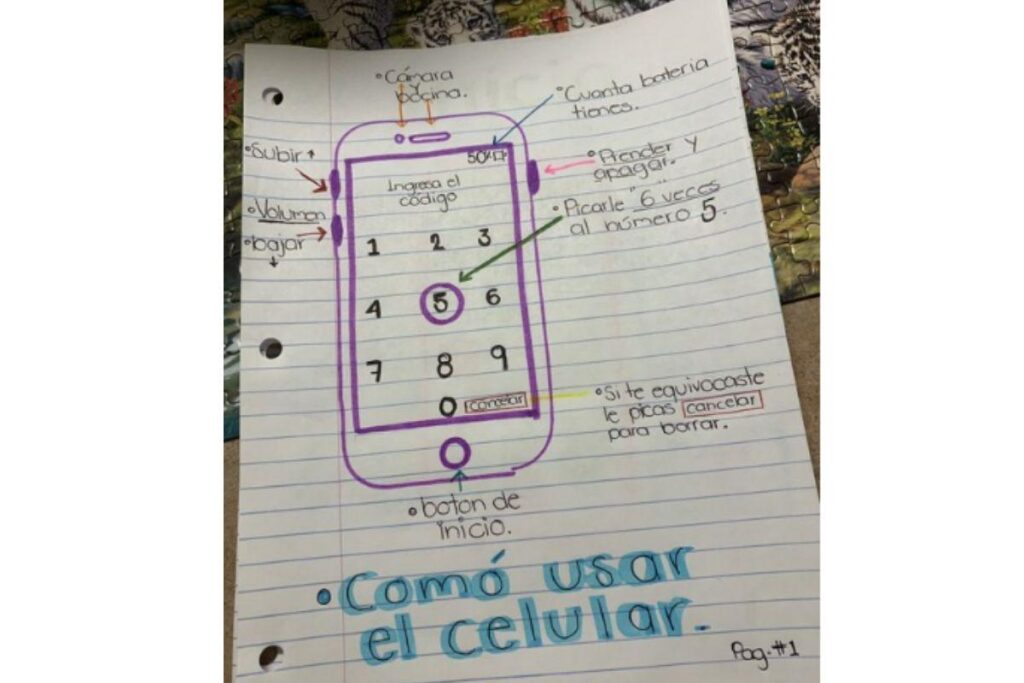 •Cámara
y
bocina.
•Cuanta bateria
tienes.
•Subir ↑
50%
•Prender y
apagar.
Ingresa el
código
•Volumen
•Picarle "6 veces
al número 5.
•bajar
↓
1 2 3
4 5 6
7 8 9
0 cancelar
•Si te equivocaste
le picas cancelar
para borrar.
•boton de
inicio.
•Comó usar
el celular.
Pag.#1